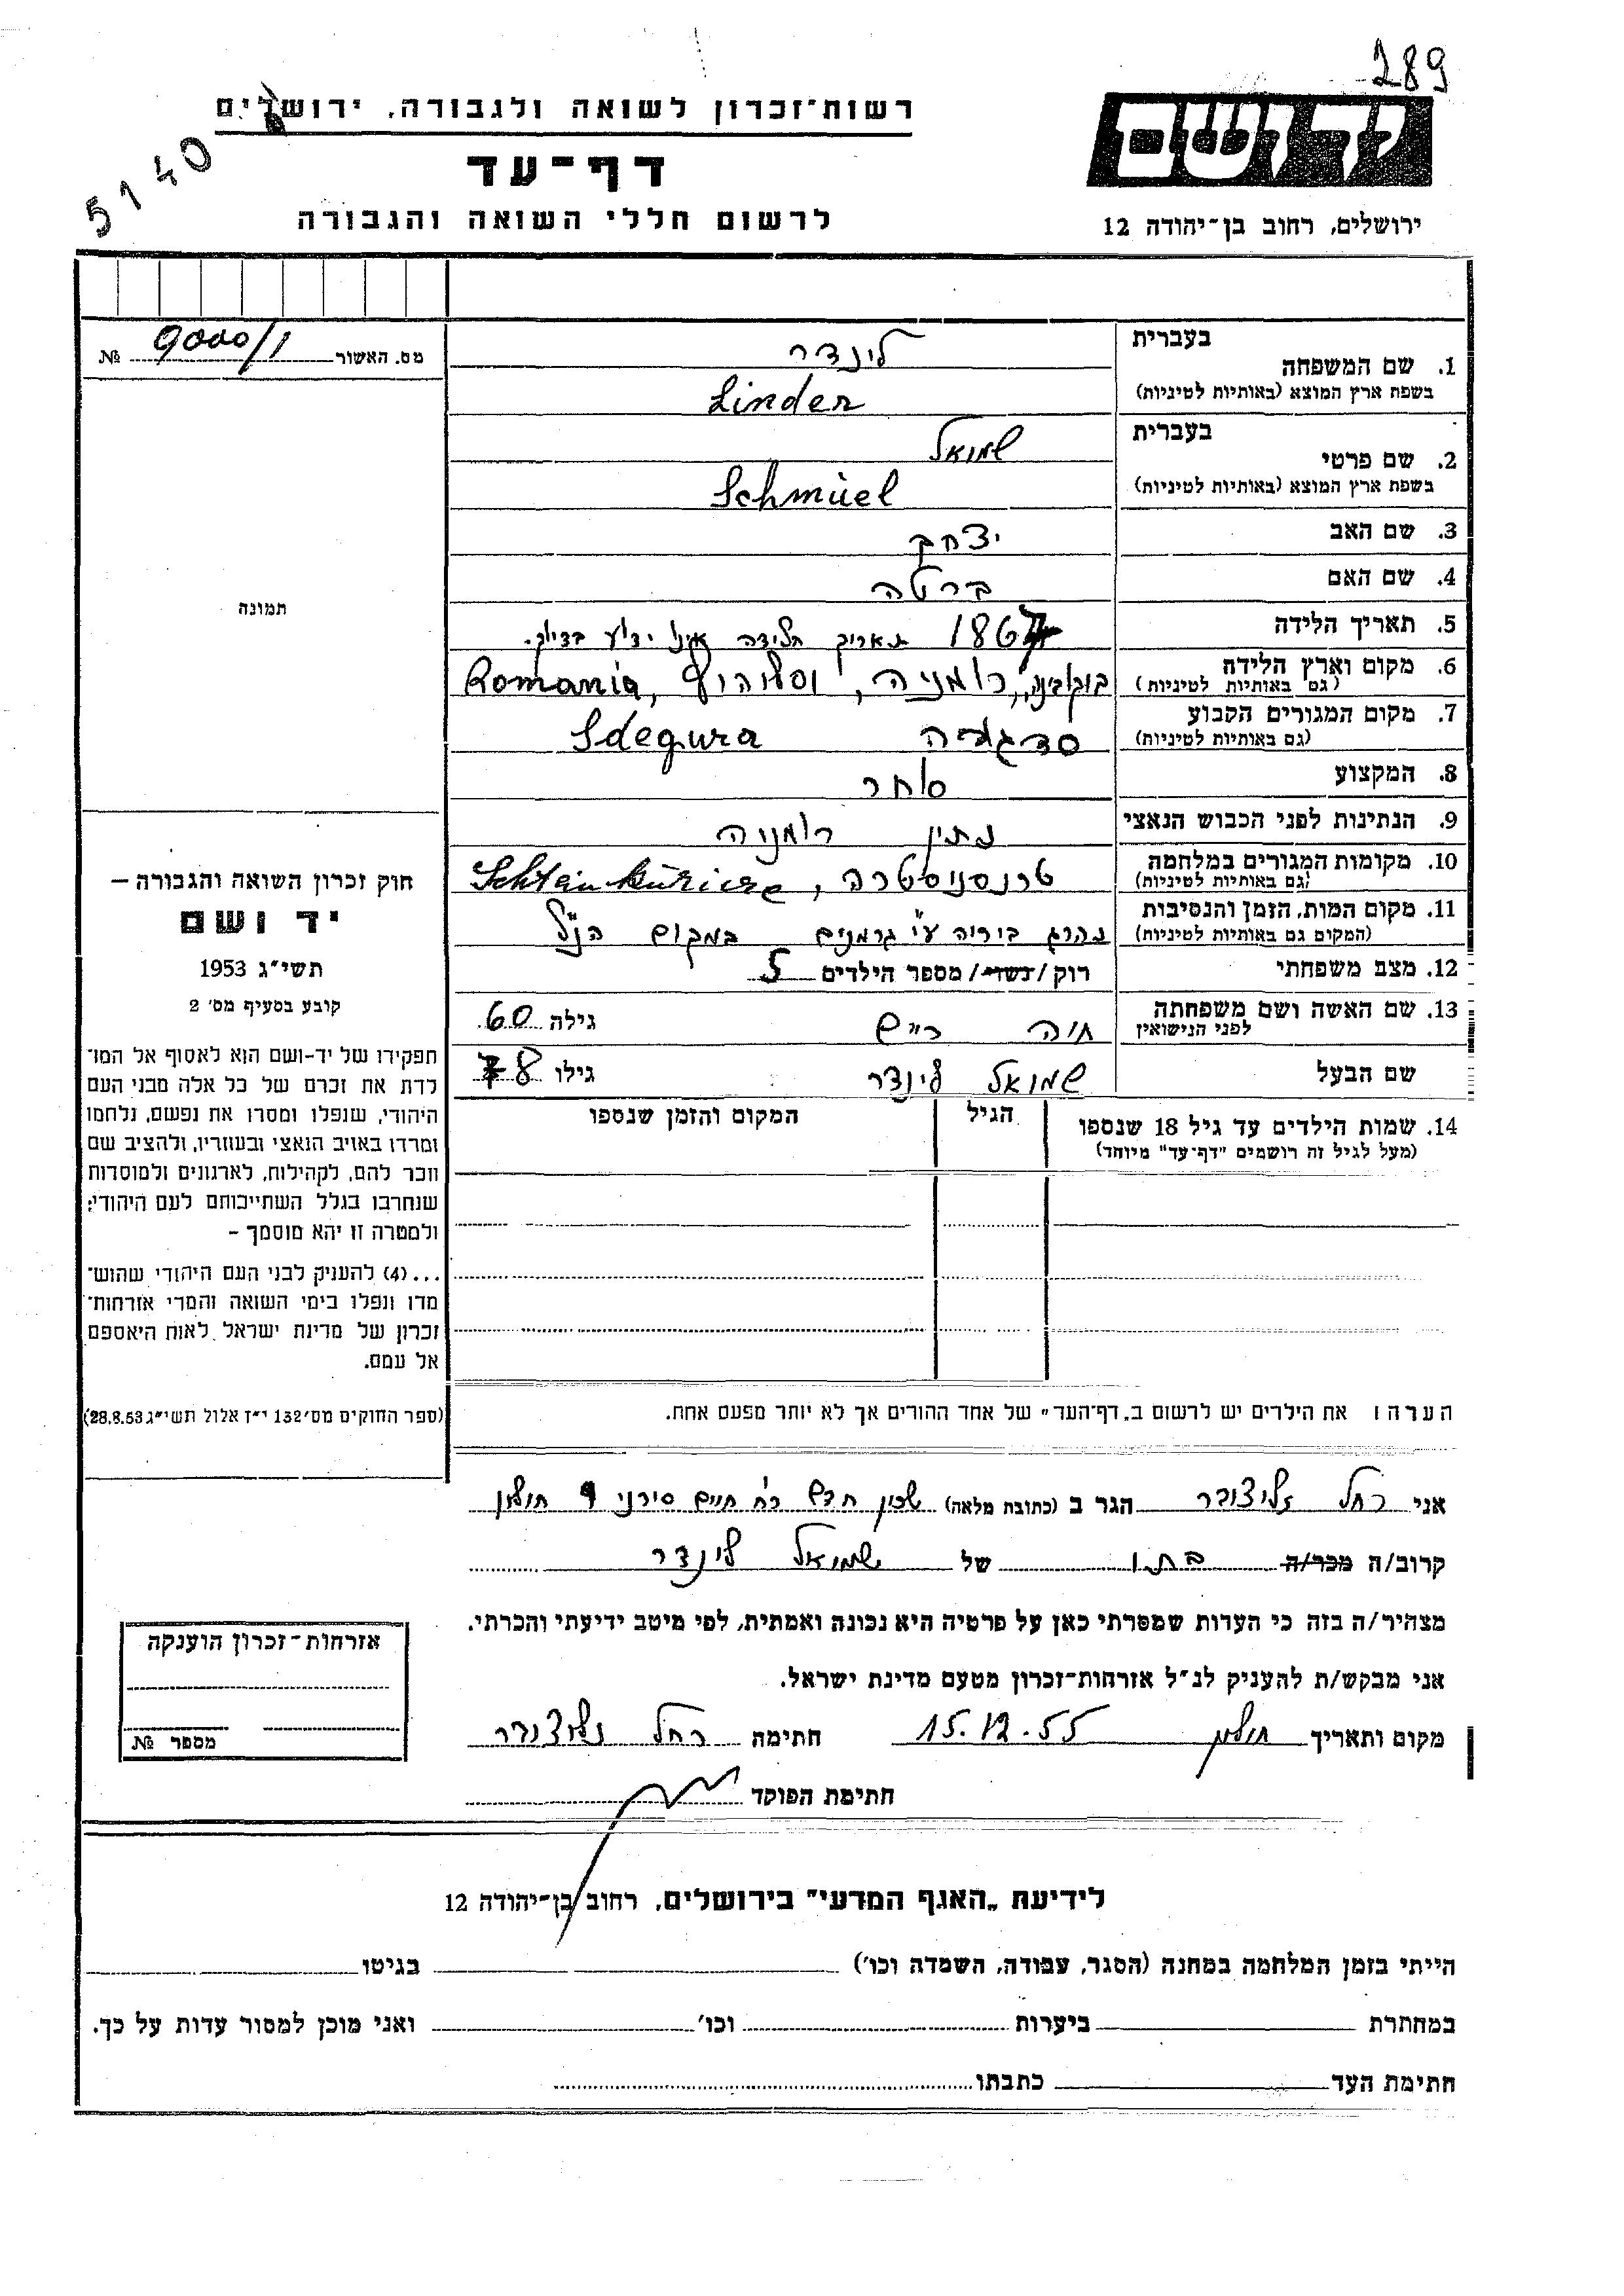 289
רשות־זכרון לשואה ולגבורה, ירושלים
דף־עד
לרשום חללי השואה והגבורה
5140
יד ושם
ירושלים, רחוב בן־יהודה 12
מס. האשור 9000/1 №
תמונה
1. שם המשפחה בעברית לינדר
בשפת ארץ המוצא (באותיות לטיניות) Linder
2. שם פרטי בעברית שמואל
בשפת ארץ המוצא (באותיות לטיניות) Schmüel
3. שם האב יצחק
4. שם האם ברטה
5. תאריך הלידה 1867 תאריך הלידה אינו ידוע בדיוק.
6. מקום וארץ הלידה (גם באותיות לטיניות) בוקובינה, רומניה, Romania
7. מקום המגורים הקבוע (גם באותיות לטיניות) סדגורה Sdegura
8. המקצוע סוחר
9. הנתינות לפני הכבוש הנאצי נתין רומניה
10. מקומות המגורים במלחמה (גם באותיות לטיניות) טרנסניסטרה,
11. מקום המות, הזמן והנסיבות (המקום גם באותיות לטיניות) נהרג ביריה ע"י גרמנים במקום הנ"ל
12. מצב משפחתי רוק/נשוי/ מספר הילדים 5
13. שם האשה ושם משפחתה לפני הנישואין חוה רייס גילה 60
שם הבעל שמואל לינדר גילו 78
14. שמות הילדים עד גיל 18 שנספו הגיל המקום והזמן שנספו
(מעל לגיל זה רושמים "דף־עד" מיוחד)
חוק זכרון השואה והגבורה —
יד ושם
תשי"ג 1953
קובע בסעיף מס' 2
תפקידו של יד-ושם הוא לאסוף אל המו־
לדת את זכרם של כל אלה מבני העם
היהודי, שנפלו ומסרו את נפשם, נלחמו
ומרדו באויב הנאצי ובעוזריו, ולהציב שם
וזכר להם, לקהילות, לארגונים ולמוסדות
שנחרבו בגלל השתייכותם לעם היהודי;
ולמטרה זו יהא מוסמך –
...(4) להעניק לבני העם היהודי שהוש־
מדו ונפלו בימי השואה והמרי אזרחות־
זכרון של מדינת ישראל לאות היאספם
אל עמם.
(ספר החוקים מס' 132 י"ז אלול תשי"ג 28.8.53)
הערה: את הילדים יש לרשום ב„דף־העד" של אחד ההורים אך לא יותר מפעם אחת.
אני רחל הגר ב (כתובת מלאה) שכון חדש רח' חיים סירני 9 חולון
קרוב/ה מכר/ה בתו של שמואל לינדר
מצהיר/ה בזה כי העדות שמסרתי כאן על פרטיה היא נכונה ואמתית, לפי מיטב ידיעתי והכרתי.
אני מבקש/ת להעניק לנ"ל אזרחות־זכרון מטעם מדינת ישראל.
מקום ותאריך חולון 15.12.55 חתימה רחל
חתימת הפוקד
אזרחות־זכרון הוענקה
מספר №
לידיעת „האגף המדעי" בירושלים, רחוב בן־יהודה 12
הייתי בזמן המלחמה במחנה (הסגר, עבודה, השמדה וכו') בגיטו
במחתרת ביערות וכו' ואני מוכן למסור עדות על כך.
חתימת העד כתבתו